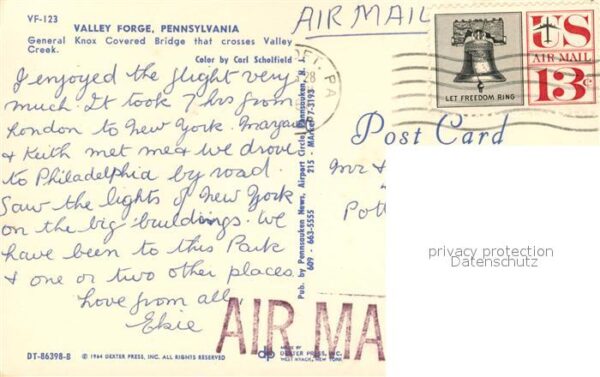 VF-123
VALLEY FORGE, PENNSYLVANIA
General Knox Covered Bridge that crosses Valley
Creek.
Color by Carl Scholfield
I enjoyed the flight very
much. It took 7 hrs from
London to New York.
& Keith met me & we drove
to Philadelphia by road.
Saw the lights of New York
on the big buildings. We
have been to this Park
& one or two other places
Love from all,
Elsie
DT-86398-B
© 1964 DEXTER PRESS, INC. ALL RIGHTS RESERVED
Pub. by Pennsauken News, Airport Circle, Pennsauken, N. J.
609 - 663-5555 215 - MArket 7-3193
MADE BY
dp DEXTER PRESS, INC.
WEST NYACK, NEW YORK
AIR MAIL
PA
28
LET FREEDOM RING
US
AIR MAIL
13c
Post Card
Mr &
Pott
privacy protection
Datenschutz
AIR MA